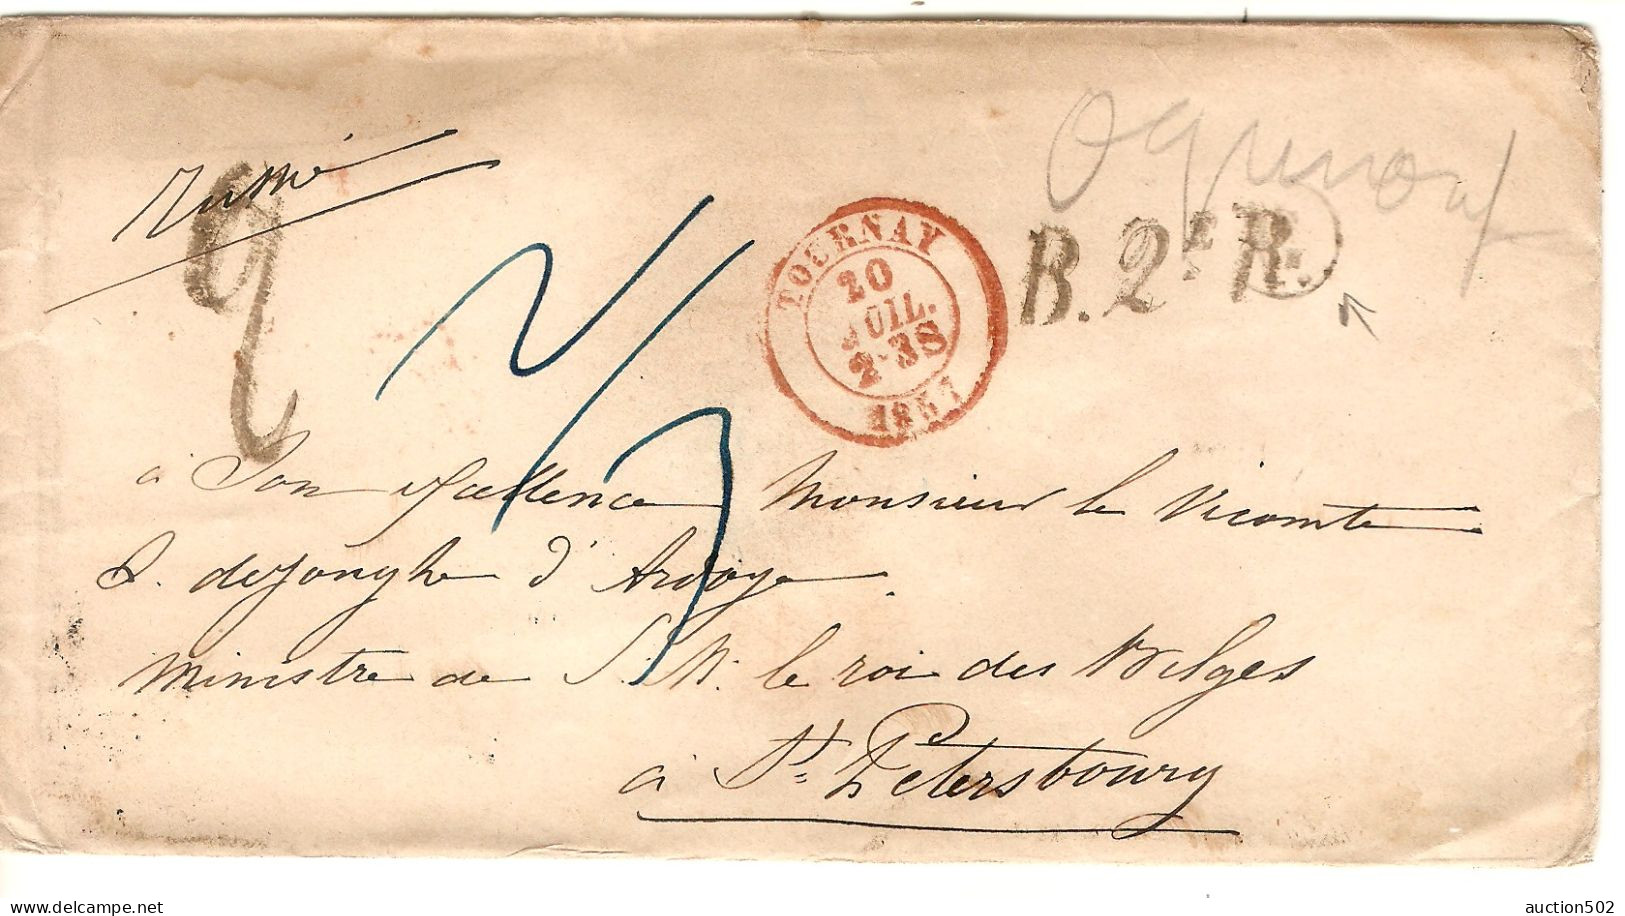 Russie
TOURNAY
20
JUIL.
2-3S
1857
B. 2e R.
à Son Excellence Monsieur le Vicomte
de Jonghe d'Ardoye
Ministre de S. M. le roi des Belges
à St. Petersbourg
www.delcampe.net
auction502